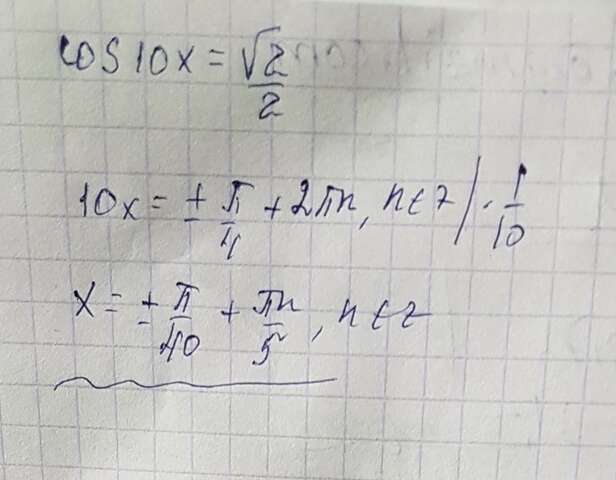 cos 10x = √2/2
10x = ± π/4 + 2πn, n∈z | · 1/10
x = ± π/40 + πn/5, n∈z